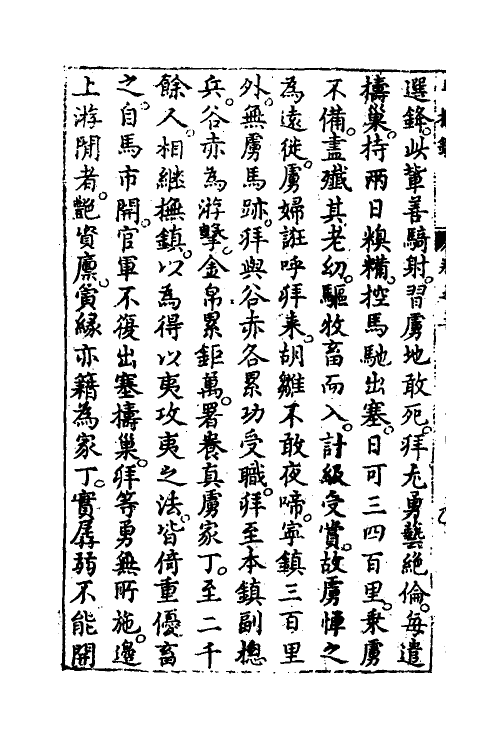 選鋒。此輩善騎射。習虜地敢死。拜尤勇藝絶倫。每遣
擣巢。持兩日糗糒。控馬馳出塞。日可三四百里。乘虜
不備。盡殲其老幼。驅牧畜而入。計級受賞。故虜憚之
為遠徙。虜婦誑呼拜来。胡雛不敢夜啼。寧鎮三百里
外。無虜馬跡。拜與谷赤各累功受職。拜至本鎮副總
兵。谷赤為游擊。金帛累鉅萬。署養真虜家丁。至二千
餘人。相継撫鎮。以為得以夷攻夷之法。皆倚重優畜
之。自馬市開。官軍不復出塞擣巢。拜等勇無所施。邊
上游閒者。艶資廩。夤緣亦籍為家丁。實孱弱不能開